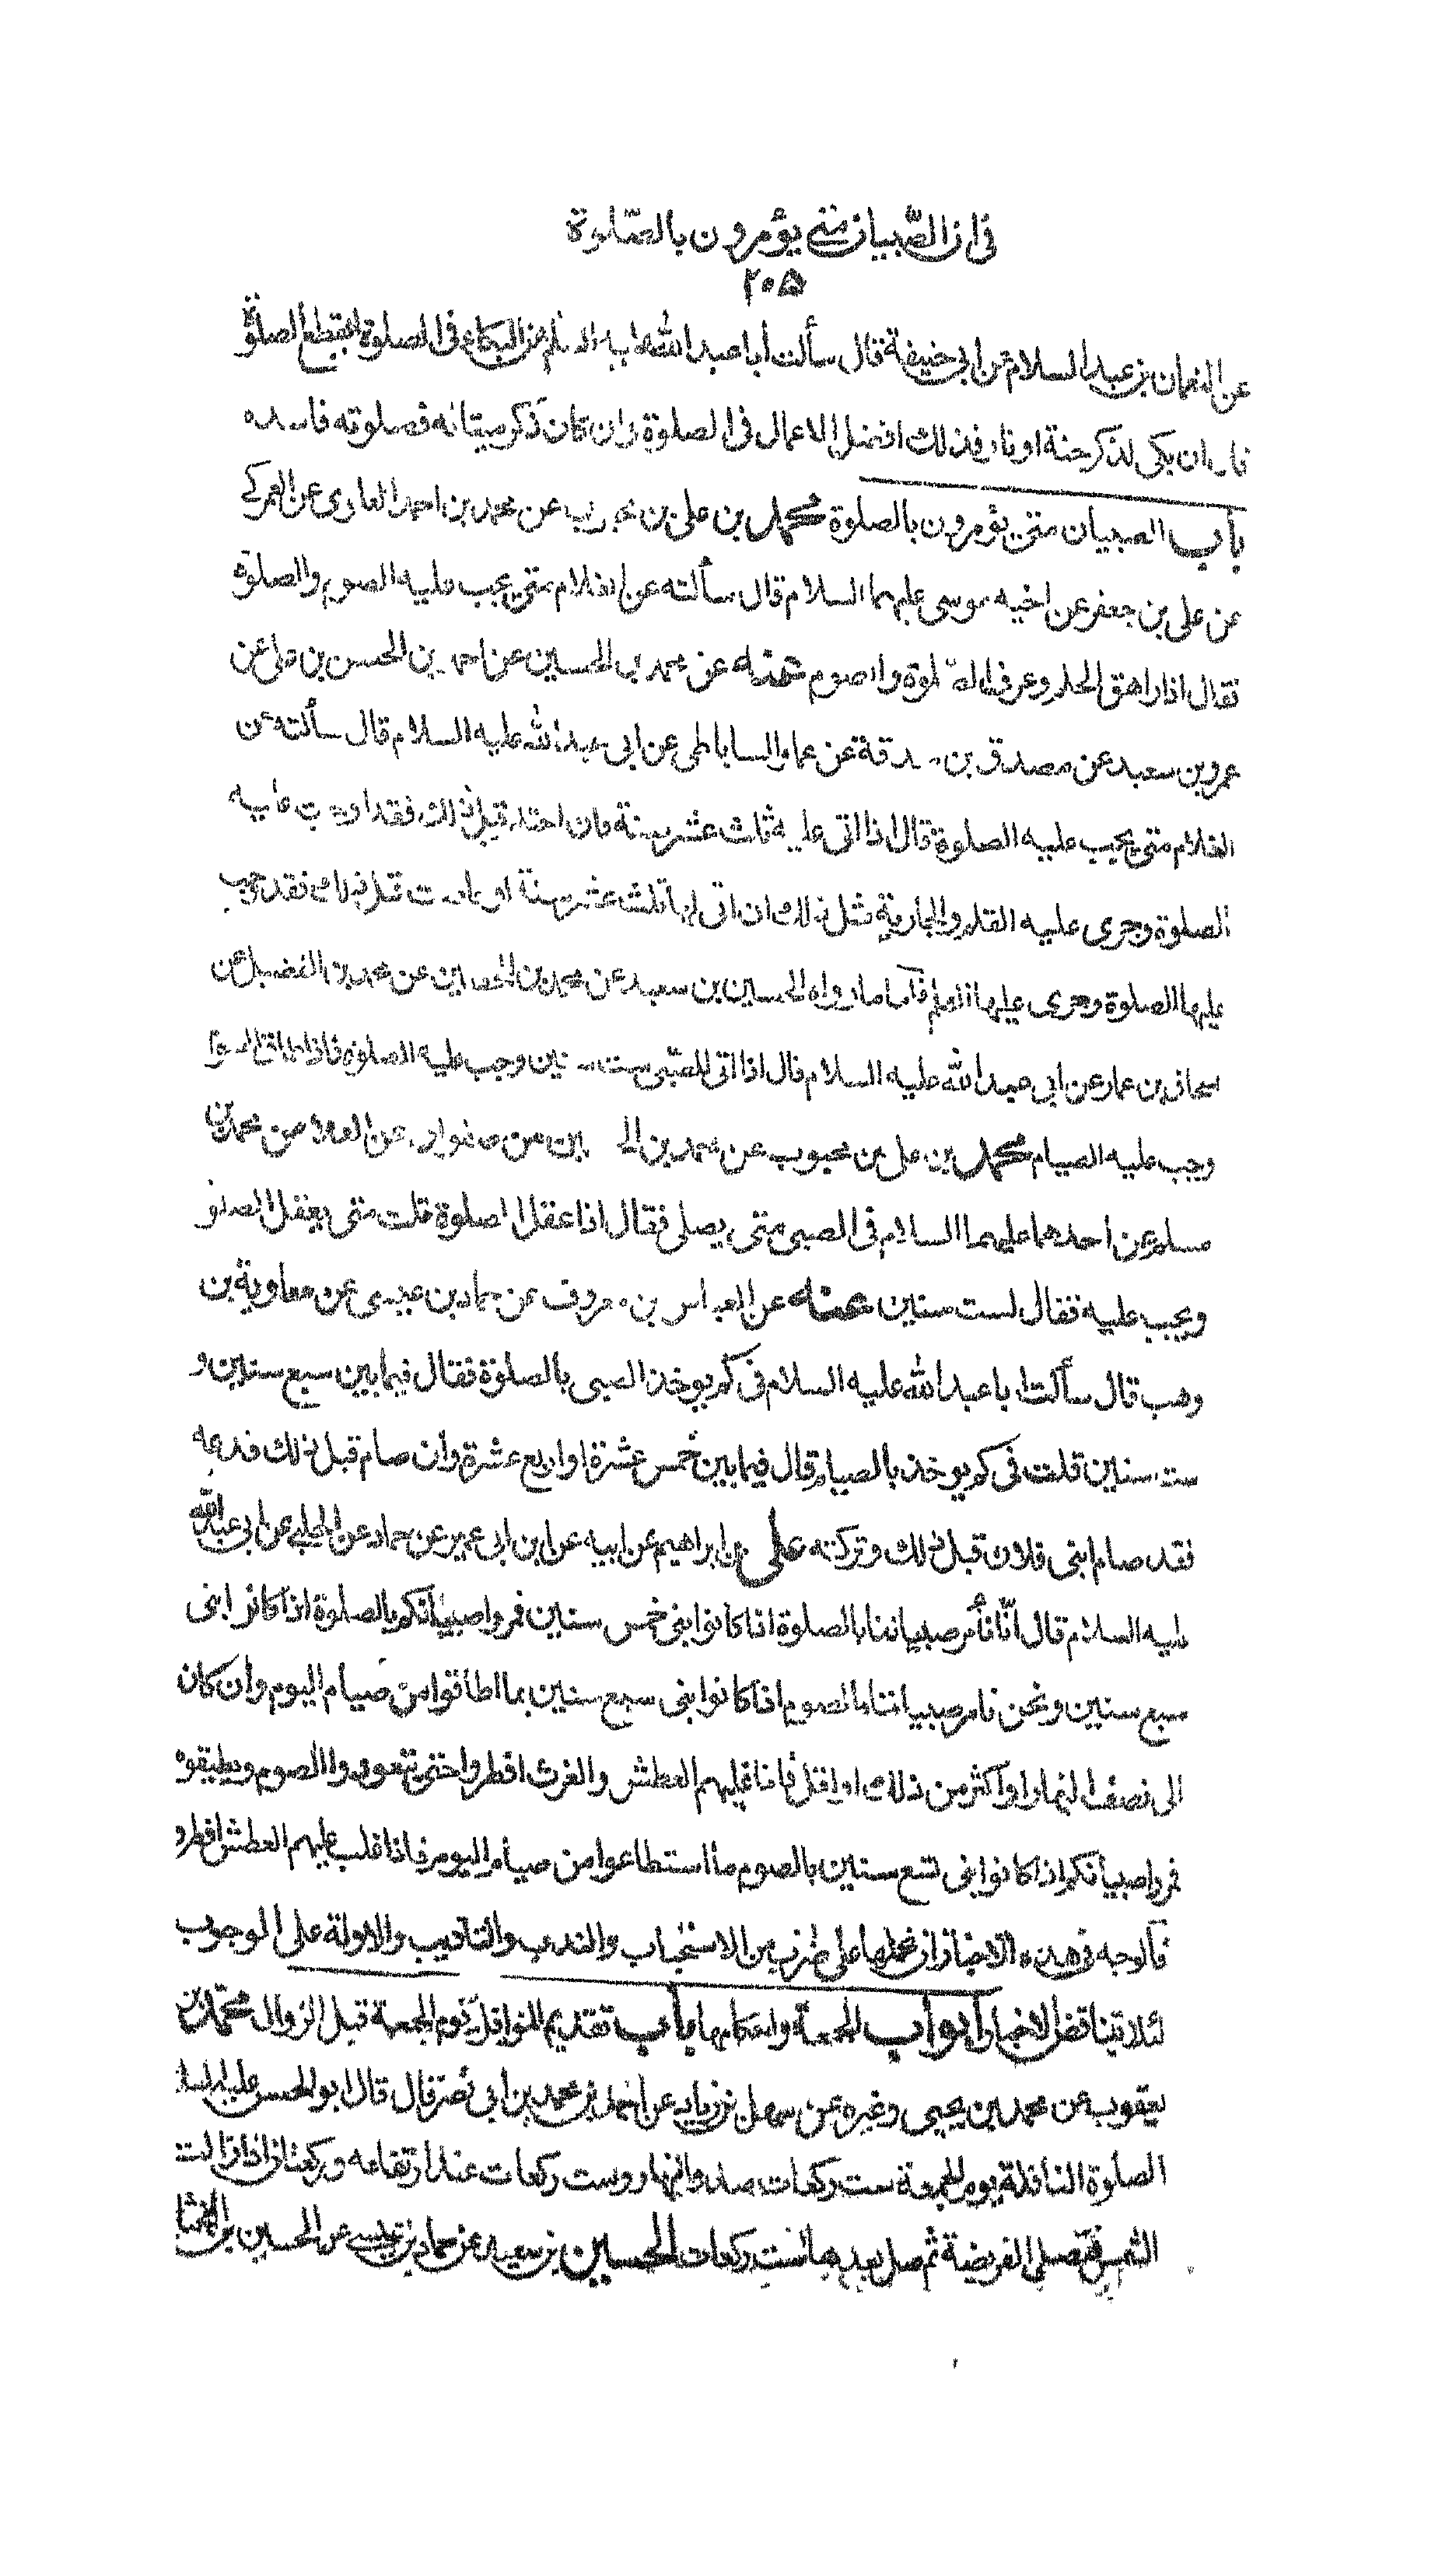 في ان الصبيان متى يؤمرون بالصلوة
٢٠٥
عن النعمان بن عبد السلام عن أبي حنيفة قال سألت أبا عبد الله عن البكاء في الصلوة ايقطع الصلوة
ان بكى لذكر جنة او نار فذلك افضل الاعمال في الصلوة وان كان ذكر ميتا له فصلوته فاسده
باب الصبيان متى يؤمرون بالصلوة محمد بن علي بن محبوب عن محمد بن احمد العلوي عن العمركي
عن علي بن جعفر عن اخيه موسى عليهما السلام قال سألته عن الغلام متى يجب عليه الصوم والصلوة
فقال اذا راهق الحلم وعرف الصلوة والصوم عنه عن محمد بن الحسين عن احمد بن الحسن بن علي عن
عمرو بن سعيد عن مصدق بن صدقة عن عمار الساباطي عن ابي عبد الله عليه السلام قال سألته عن
الغلام متى يجب عليه الصلوة قال اذا اتى عليه ثلث عشر سنة فان احتلم قبل ذلك فقد وجبت عليه
الصلوة وجرى عليه القلم والجارية مثل ذلك ان اتى لها ثلث عشر سنة او حاضت قبل ذلك فقد وجب
عليها الصلوة وجرى عليها القلم فأما ما رواه الحسين بن سعيد عن محمد بن الحصين عن محمد بن الفضيل عن
اسحاق بن عمار عن ابي عبد الله عليه السلام قال اذا اتى للصبي ست سنين وجب عليه الصلوة فاذا اطاق الصوم
وجب عليه الصيام محمد بن علي بن محبوب عن محمد بن الحسين عن صفوان عن العلا عن محمد بن
مسلم عن احدهما عليهما السلام في الصبي متى يصلي فقال اذا عقل الصلوة قلت متى يعقل الصلوة
ويجب عليه فقال لست سنين عنه عن العباس بن معروف عن حماد بن عيسى عن معاوية بن
وهب قال سألت ابا عبد الله عليه السلام في كم يوخذ الصبي بالصلوة فقال فيما بين سبع سنين و
ست سنين قلت في كم يوخذ بالصيام قال فيما بين خمس عشرة او اربع عشرة وان صام قبل ذلك فدعه
فقد صام ابني فلان قبل ذلك وتركته علي بن ابراهيم عن ابيه عن ابن ابي عمير عن حماد عن الحلبي عن ابي عبد الله
عليه السلام قال انّا نأمر صبياننا بالصلوة اذا كانوا بني خمس سنين فمروا صبيانكم بالصلوة اذا كانوا بني
سبع سنين ونحن نامر صبياننا بالصوم اذا كانوا بني سبع سنين بما اطاقوا من صيام اليوم وان كان
الى نصف النهار او اكثر من ذلك او اقل فاذا غلبهم العطش والغرث افطروا حتى يتعودوا الصوم ويطيقوه
فمروا صبيانكم اذا كانوا بني تسع سنين بالصوم ما استطاعوا من صيام اليوم فاذا غلب عليهم العطش افطروا
فالوجه في هذه الاخبار ان نحملها على ضرب من الاستحباب والندب والتاديب والاولة على الوجوب
لئلا تتناقض الاخبار أبواب الجمعة واحكامها باب تقديم النوافل يوم الجمعة قبل الزوال محمد بن
يعقوب عن محمد بن يحيى وغيره عن سهل بن زياد عن احمد بن محمد بن ابي نصر قال قال ابو الحسن عليه السلام
الصلوة النافلة يوم الجمعة ست ركعات صدر النهار وست ركعات عند ارتفاعه وركعتان اذا زالت
الشمس ثم صل الفريضة ثم صل بعدها ست ركعات الحسين بن سعيد عن حماد بن عيسى عن الحسين بن المختار